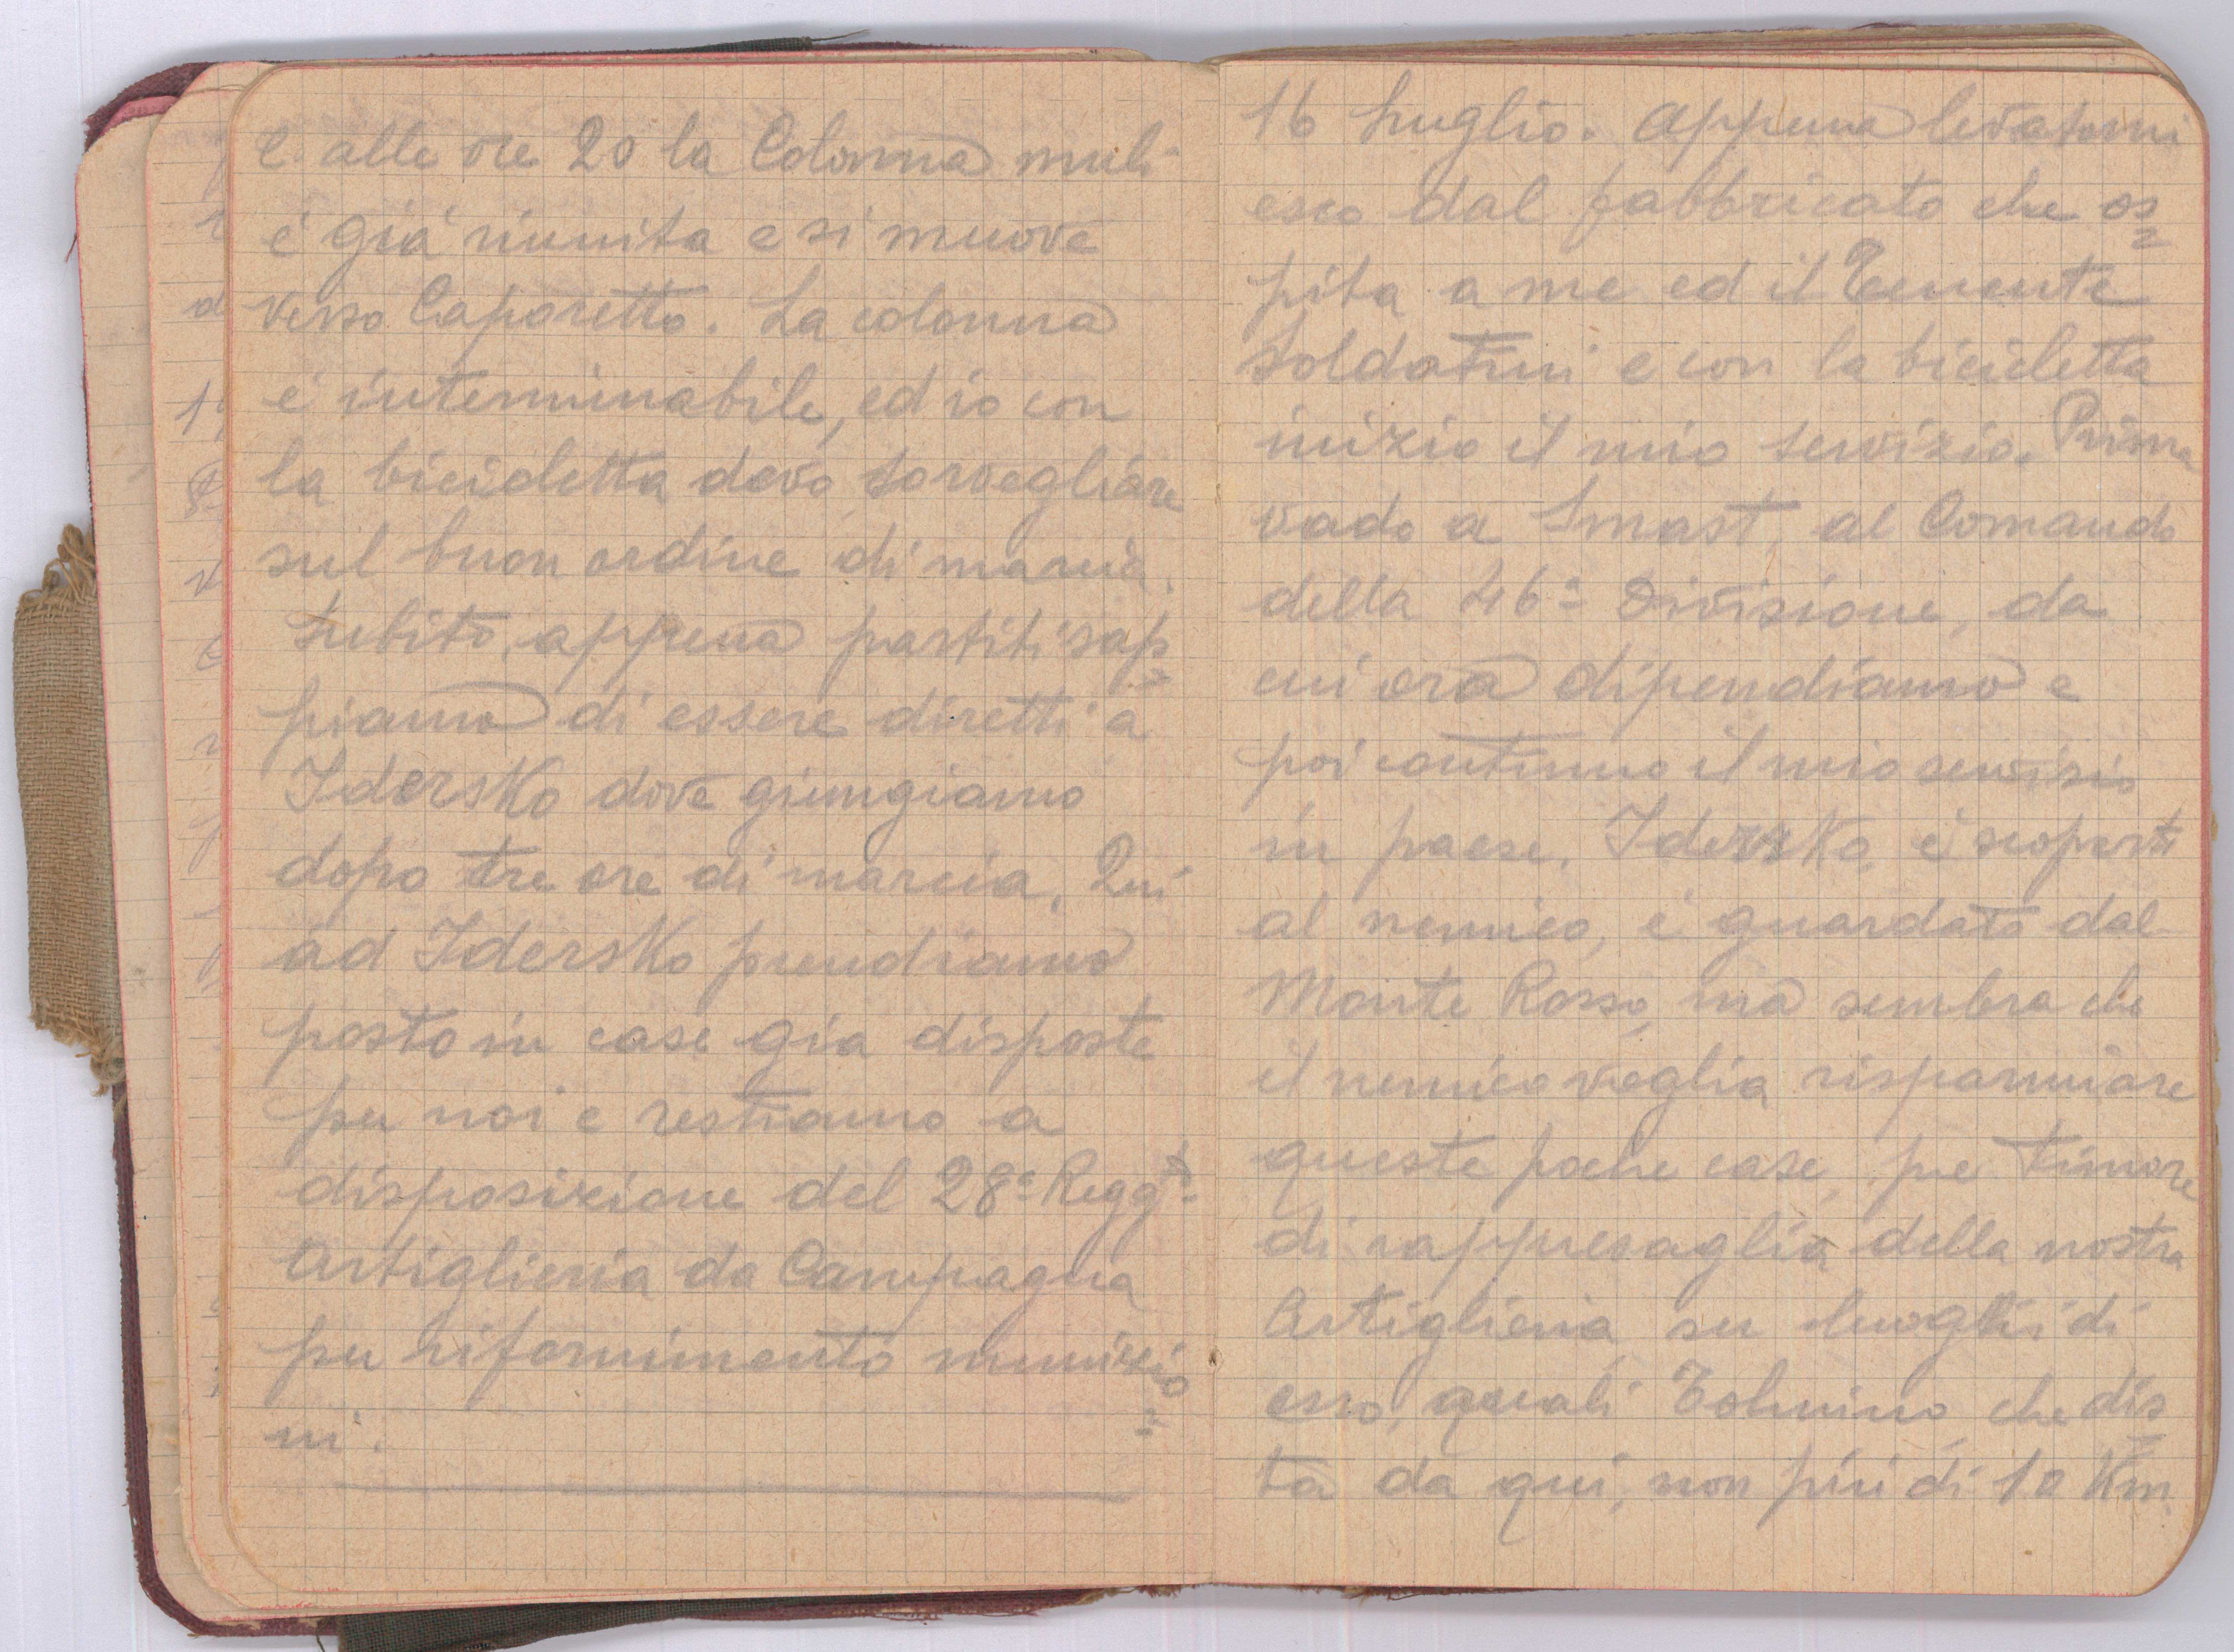 e alle ore 20 la Colonna muli
é giá riunita e si muove
verso Caporetto. La colonna
é interminabile, ed io con
la bicicletta devo sorvegliare
sul buon ordine di marcia.
Subito, appena partiti sap=
piamo di essere diretti a
Idersko dove giungiamo
dopo tre ore di marcia. Qui
ad Idersko prendiamo
posto in case gia disposte
per noi e restiamo a
disposizione del 28° Reggto
Artiglieria da Campagna
per rifornimento munizio=
ni.
16 Luglio. Appena levatomi
esco dal fabbricato che os=
pita a me ed il Tenente
Soldatini e con la bicicletta
inizio il mio servizio. Prima
vado a Smast, al Comando
della 46a Divisione, da
cui ora dipendiamo e
poi continuo il mio servizio
in paese. Idersko, è scoperto
al nemico, é guardato dal
Monte Rosso, ma sembra che
il nemico voglia risparmiare
queste poche case, pe timore
di rappresaglia della nostra
Artiglieria su luoghi di
esso, quali Tolmino, che dis=
ta da qui, non piú di 10 Km.